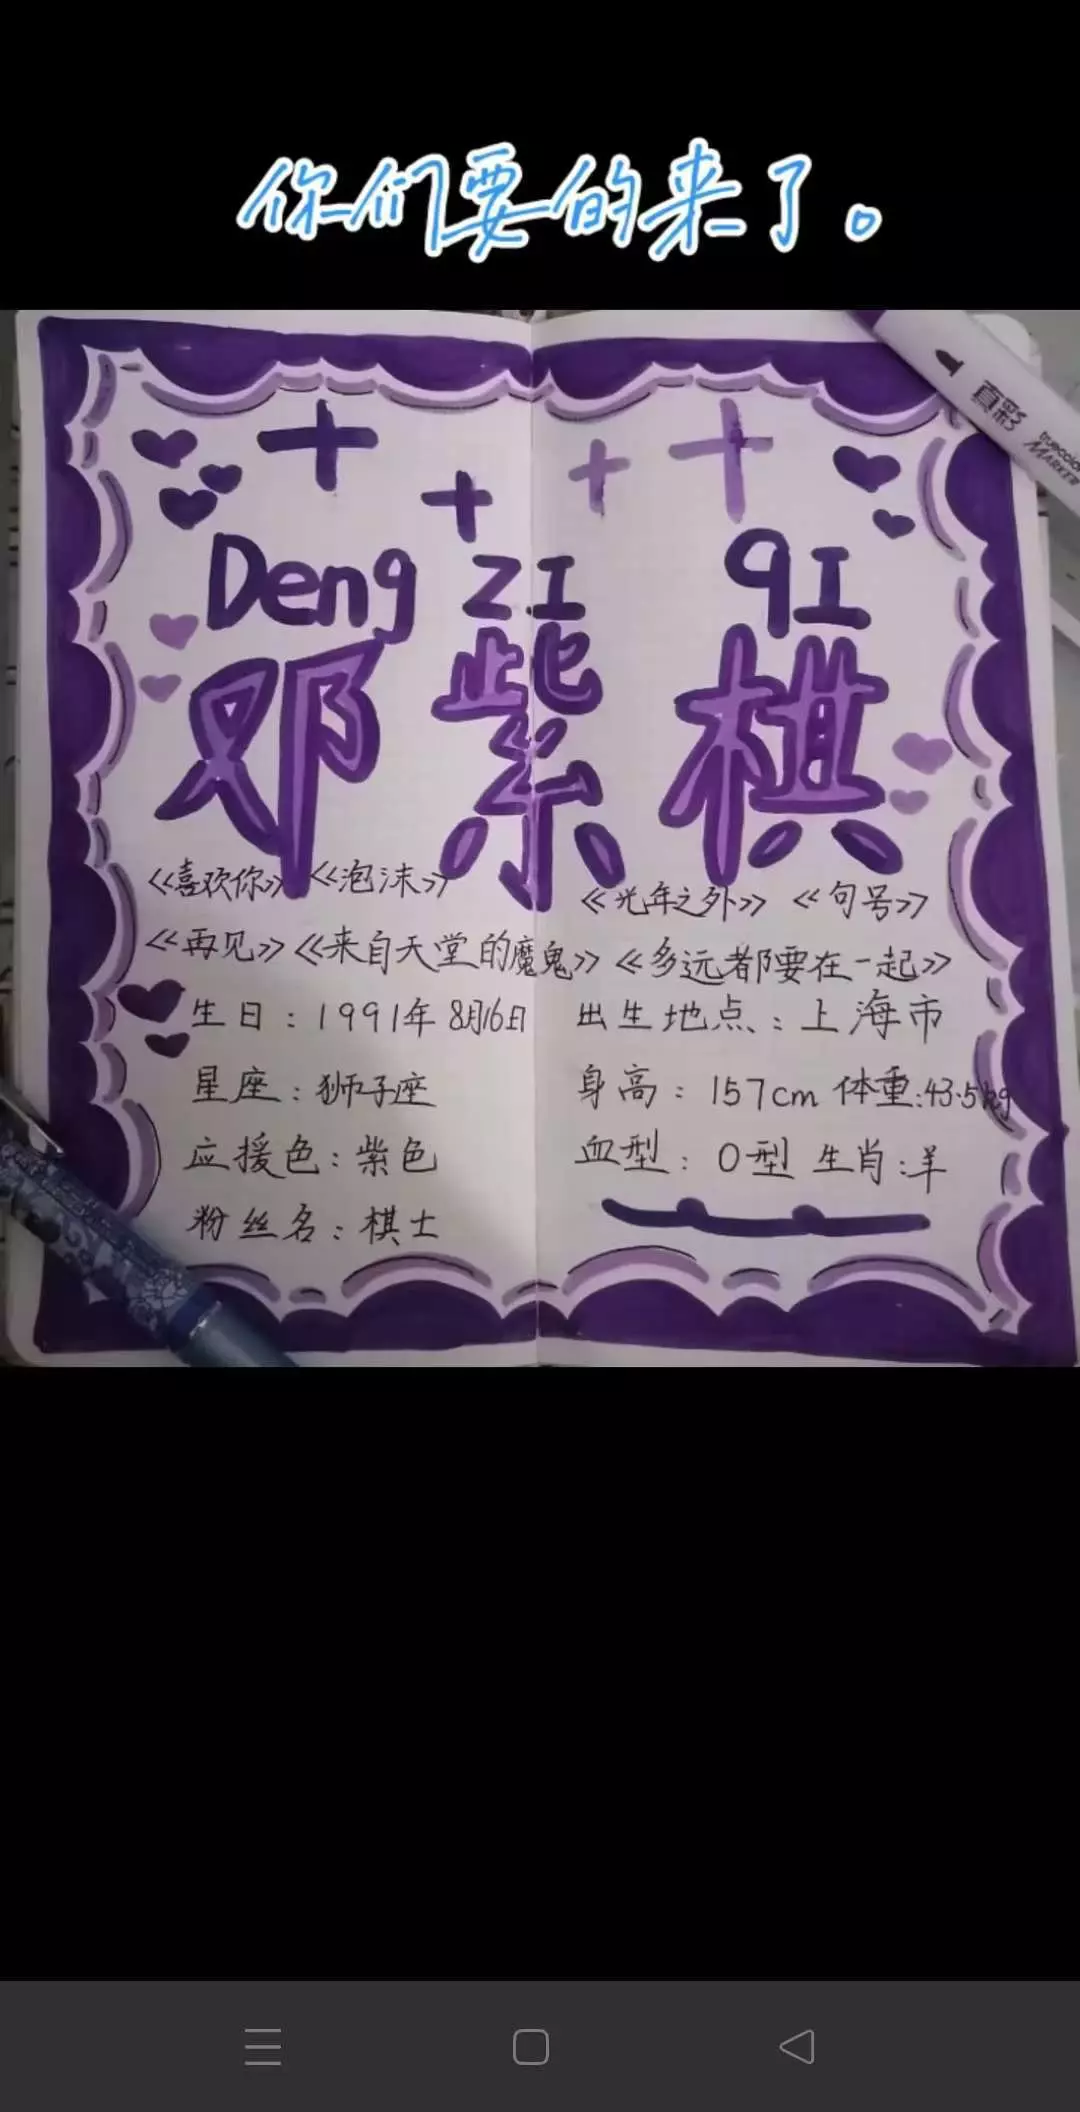 你们要的来了。
真彩
truecolor
MARKER
Deng ZI qI
邓紫棋
《喜欢你》《泡沫》 《光年之外》 《句号》
《再见》《来自天堂的魔鬼》《多远都要在一起》
生日：1991年8月16日 出生地点：上海市
星座：狮子座 身高：157cm 体重：43.5kg
应援色：紫色 血型：O型 生肖：羊
粉丝名：棋士